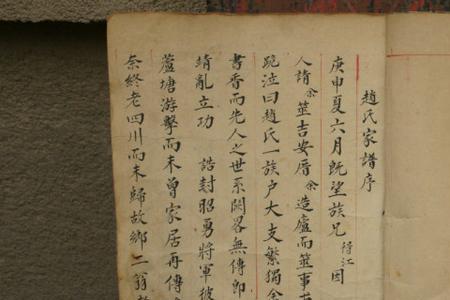 趙氏家譜序
庚申夏六月既望族兄待江因
人請余筮吉安厝余造廬而筮事
跪泣曰趙氏一族户大支繁獨
書香而先人之世系闕畧無傳卽
靖亂立功 誥封昭勇將軍彼
蘆塘游擊而未曾家居再傳
奈終老四川而未歸故鄉二翁